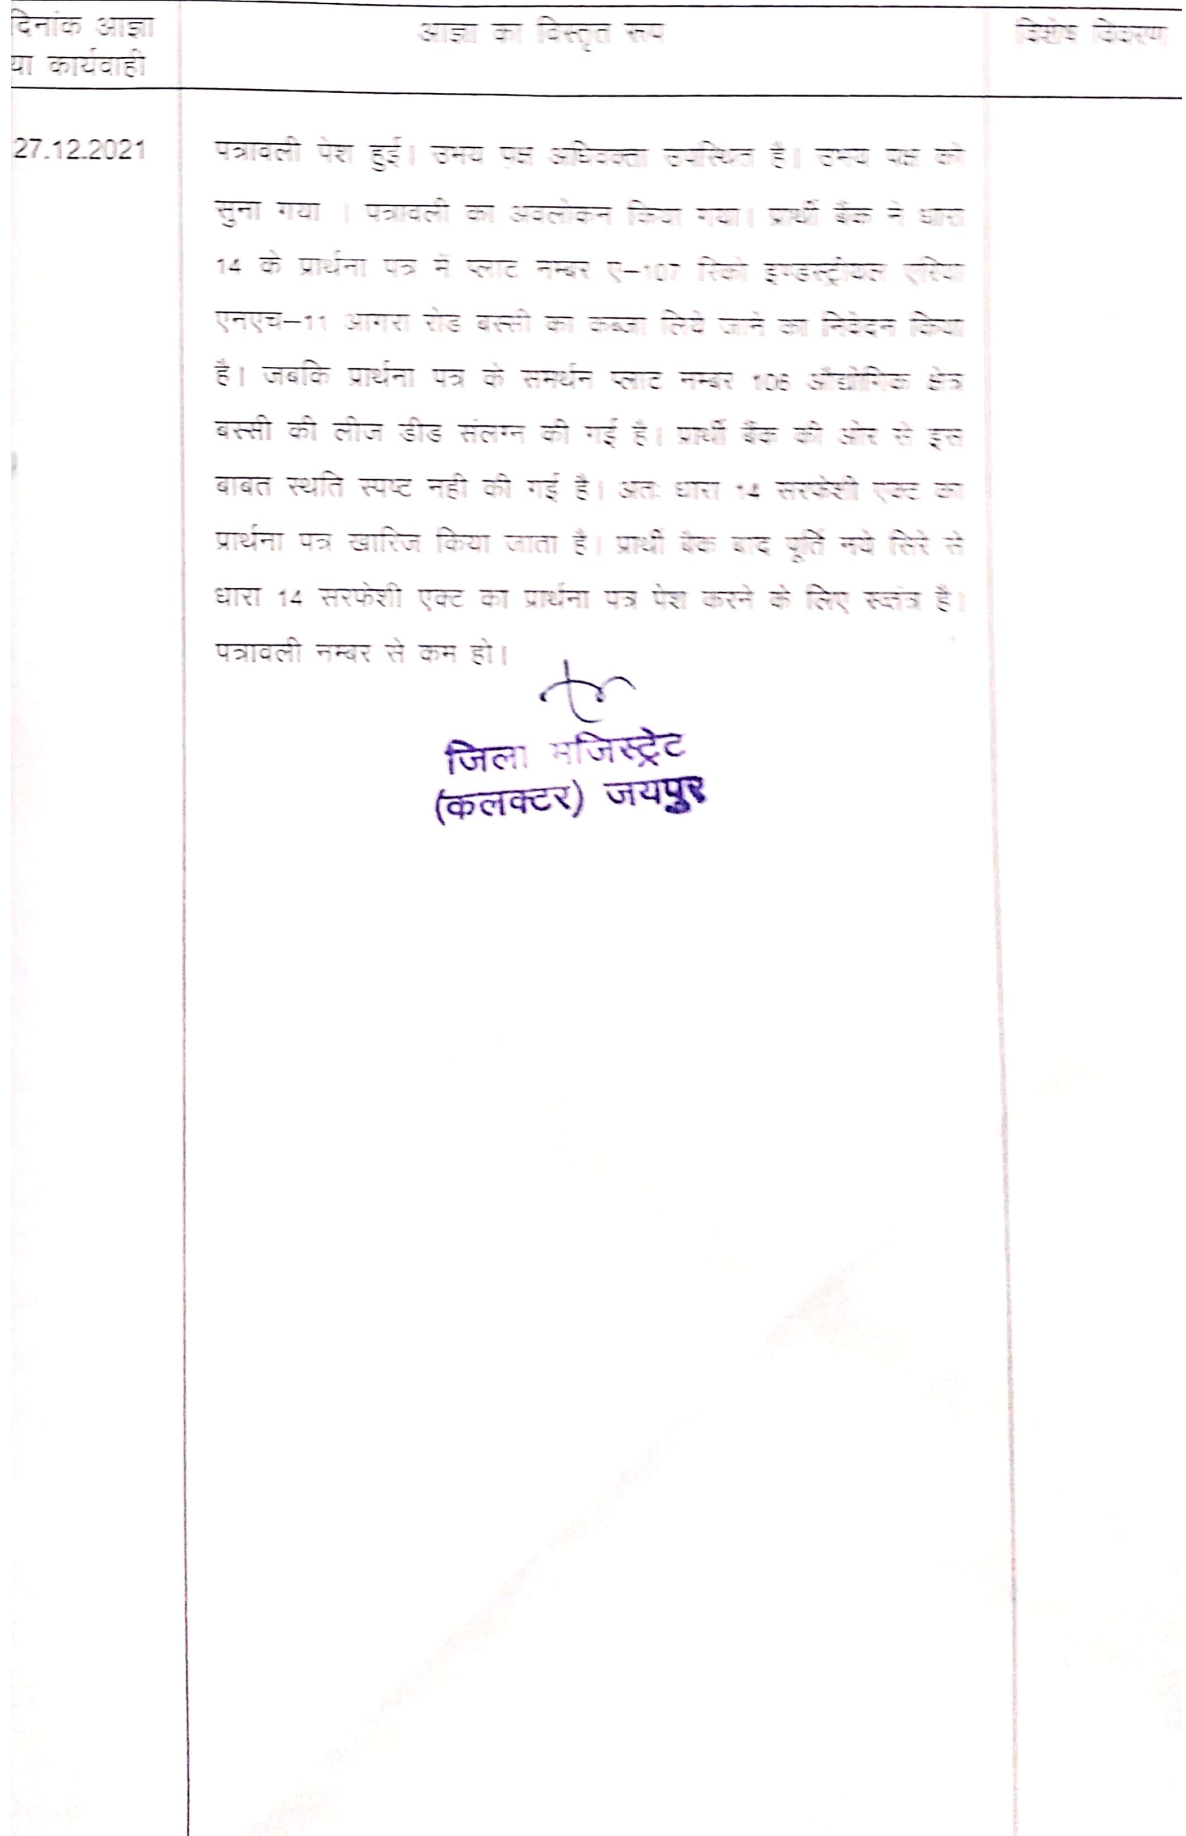 दिनांक आज्ञा
या कार्यवाही
आज्ञा का विस्तृत रूप
विशेष विवरण
27.12.2021
पत्रावली पेश हुई। उभय पक्ष अधिवक्ता उपस्थित है। उभय पक्ष को
सुना गया । पत्रावली का अवलोकन किया गया। प्रार्थी बैंक ने धारा
14 के प्रार्थना पत्र में प्लाट नम्बर ए–107 रिको इण्डस्ट्रीयल एरिया
एनएच–11 आगरा रोड बस्सी का कब्जा लिये जाने का निवेदन किया
है। जबकि प्रार्थना पत्र के समर्थन प्लाट नम्बर 106 औद्योगिक क्षेत्र
बस्सी की लीज डीड संलग्न की गई है। प्रार्थी बैंक की ओर से इस
बाबत स्थति स्पष्ट नही की गई है। अतः धारा 14 सरफेशी एक्ट का
प्रार्थना पत्र खारिज किया जाता है। प्रार्थी बैंक बाद पूर्ति नये सिरे से
धारा 14 सरफेशी एक्ट का प्रार्थना पत्र पेश करने के लिए स्वतंत्र है।
पत्रावली नम्बर से कम हो।
जिला मजिस्ट्रेट
(कलक्टर) जयपुर